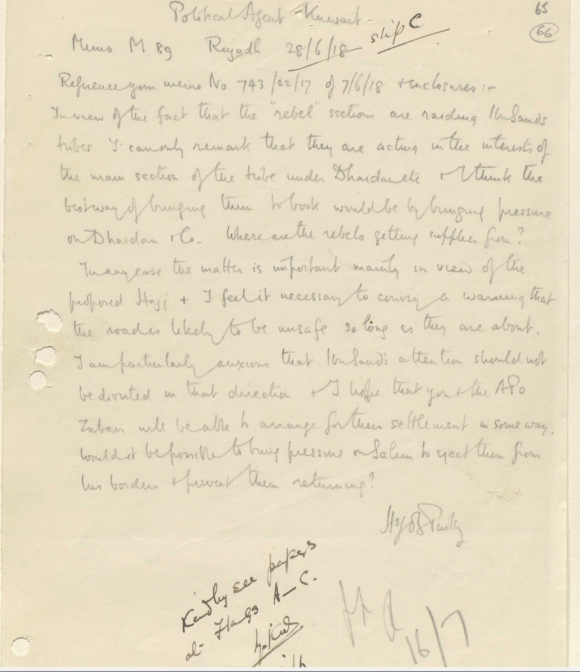 65
66
Political Agent Kuwait -
slip C
Memo M 89 Riyadh 28/6/18
Reference your memo No 743/22/17 of 7/6/18 + enclosures :-
In view of the fact that the "rebel" section are raiding Ibn Sauds
tribes I can only remark that they are acting in the interests of
the main section of the tribe under Dhaidan etc + I think the
best way of bringing them to book would be by bringing pressure
on Dhaidan + Co. Where are the rebels getting supplies from?
In any case the matter is important mainly in view of the
proposed Hajj + I feel it necessary to convey a warning that
the road is likely to be unsafe so long as they are about.
I am particularly anxious that Ibn Sauds attention should not
be diverted in that direction + I hope that you + the APO
Zubair will be able to arrange for their settlement in some way.
Would it be possible to bring pressure on Salim to eject them from
his borders + prevent them returning?
Kindly see papers
at Flags A - C.
16/7